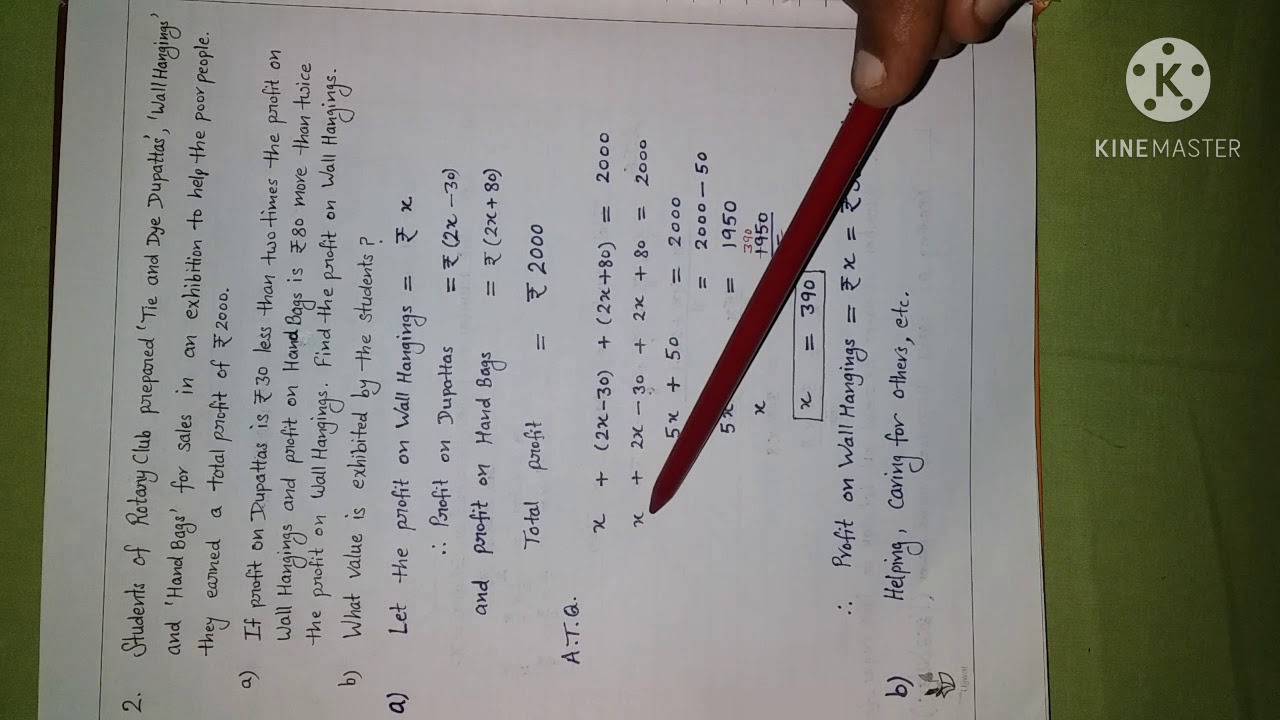 2. Students of Rotary Club prepared 'Tie and Dye Dupattas', 'Wall Hangings'
and 'Hand Bags' for sales in an exhibition to help the poor people.
they earned a total profit of ₹2000.
a) If profit on Dupattas is ₹30 less than two times the profit on
Wall Hangings and profit on Hand Bags is ₹80 more than twice
the profit on Wall Hangings. Find the profit on Wall Hangings.
b) What value is exhibited by the students?
a) Let the profit on Wall Hangings = ₹ x
∴ Profit on Dupattas = ₹ (2x - 30)
and profit on Hand Bags = ₹ (2x + 80)
Total profit = ₹ 2000
A.T.Q.
x + (2x-30) + (2x+80) = 2000
x + 2x - 30 + 2x + 80 = 2000
5x + 50 = 2000
5x = 2000 - 50
= 1950
x 390
1950
x = 390
∴ Profit on Wall Hangings = ₹ x = ₹
b) Helping, caring for others, etc.
Ujjwal
KINEMASTER